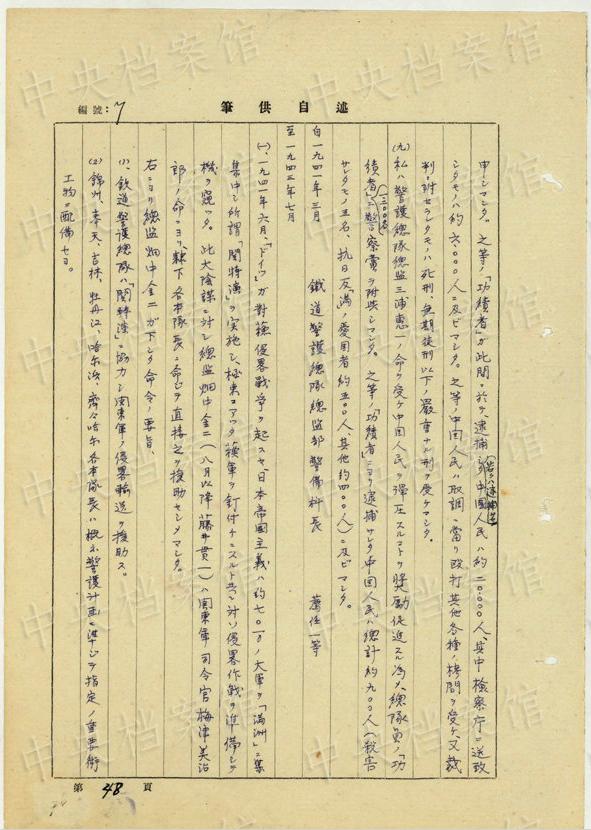 述自供筆
編號：7
申シマシタ。之等ノ「功績者」ガ此間ニ於テ、逮捕シタ中国人民ハ約二〇、〇〇〇人、其中検察庁ニ送致
シタモノハ約六、〇〇〇人ニ及ビマシタ。之等ノ中国人民ハ取調ニ当リ殴打其他各種ノ拷問ヲ受ケ、又裁
判ニ附セラレタモノハ死刑、無期徒刑以下ノ嚴重ナル刑ヲ受ケマシタ。
(九)私ハ警護総隊総監三浦恵一ノ命ヲ受ケ中国人民ヲ弾圧スルコトヲ奨勵促進スル為メ、總隊員ノ「功
績者」(一三〇〇名)ニ警察賞ヲ附與シマシタ。之等ノ「功績者」ニヨリ逮捕サレタ中国人民ハ總計約九〇〇人(殺害
サレタモノ三名、抗日反「満」ノ愛国者約五〇〇人、其他約四〇〇人)ニ及ビマシタ。
自一九四一年三月
至一九四三年七月
鐵道警護總隊總監部警備科長
薦任一等
(一)、一九四一年六月、「ドイツ」ガ対蘇侵畧戦争ヲ起スヤ、日本帝国主義ハ約七〇万ノ大軍ヲ「満洲」ニ集
集中シ所謂「関特演」ヲ実施シ、極東ニアッタ蘇軍ヲ釘付ケニスルト共ニ対ソ侵畧作戦ヲ準備シテ
機ヲ窺ッタ。此大陰謀ニ対シ總監畑中金二(八月以降ハ藤井貫一)ハ関東軍司令官梅津美治
郎ノ命ニヨリ、隷下各本隊長ニ命ジテ直接之ヲ援助セシメマシタ。
右ニヨリ總監畑中金二ガ下シタ命令ノ要旨、
(1)、鉄道警護總隊ハ「関特演」ニ協力シ関東軍ノ侵畧輸送ヲ援助ス。
(2)錦州、奉天、吉林、牡丹江、哈尓浜、齊々哈尓各本隊長ハ概ネ警護計画ニ準ジテ指定ノ重要術
工物ニ配備セヨ。
第48頁
中央档案馆